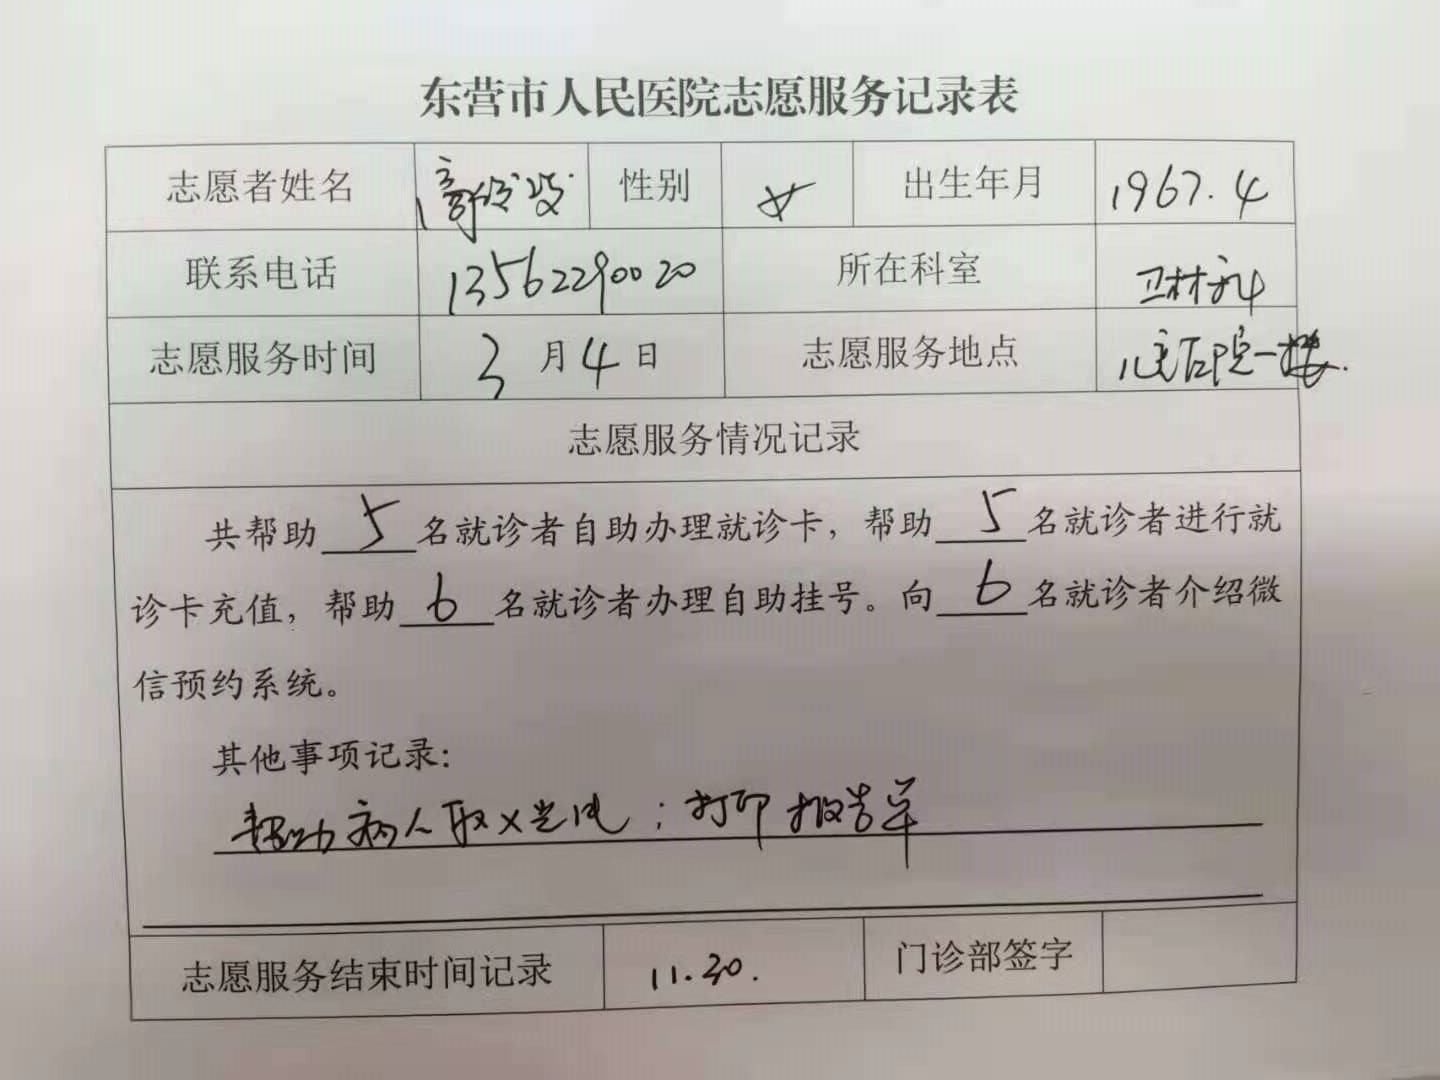 东营市人民医院志愿服务记录表
志愿者姓名 性别 女 出生年月 1967.4
联系电话 13562290020 所在科室 卫材科
志愿服务时间 3月4日 志愿服务地点 儿童医院一楼.
志愿服务情况记录
共帮助 5 名就诊者自助办理就诊卡，帮助 5 名就诊者进行就
诊卡充值，帮助 6 名就诊者办理自助挂号。向 6 名就诊者介绍微
信预约系统。
其他事项记录：
帮助病人取X光片；打印报告单
志愿服务结束时间记录 11.30. 门诊部签字